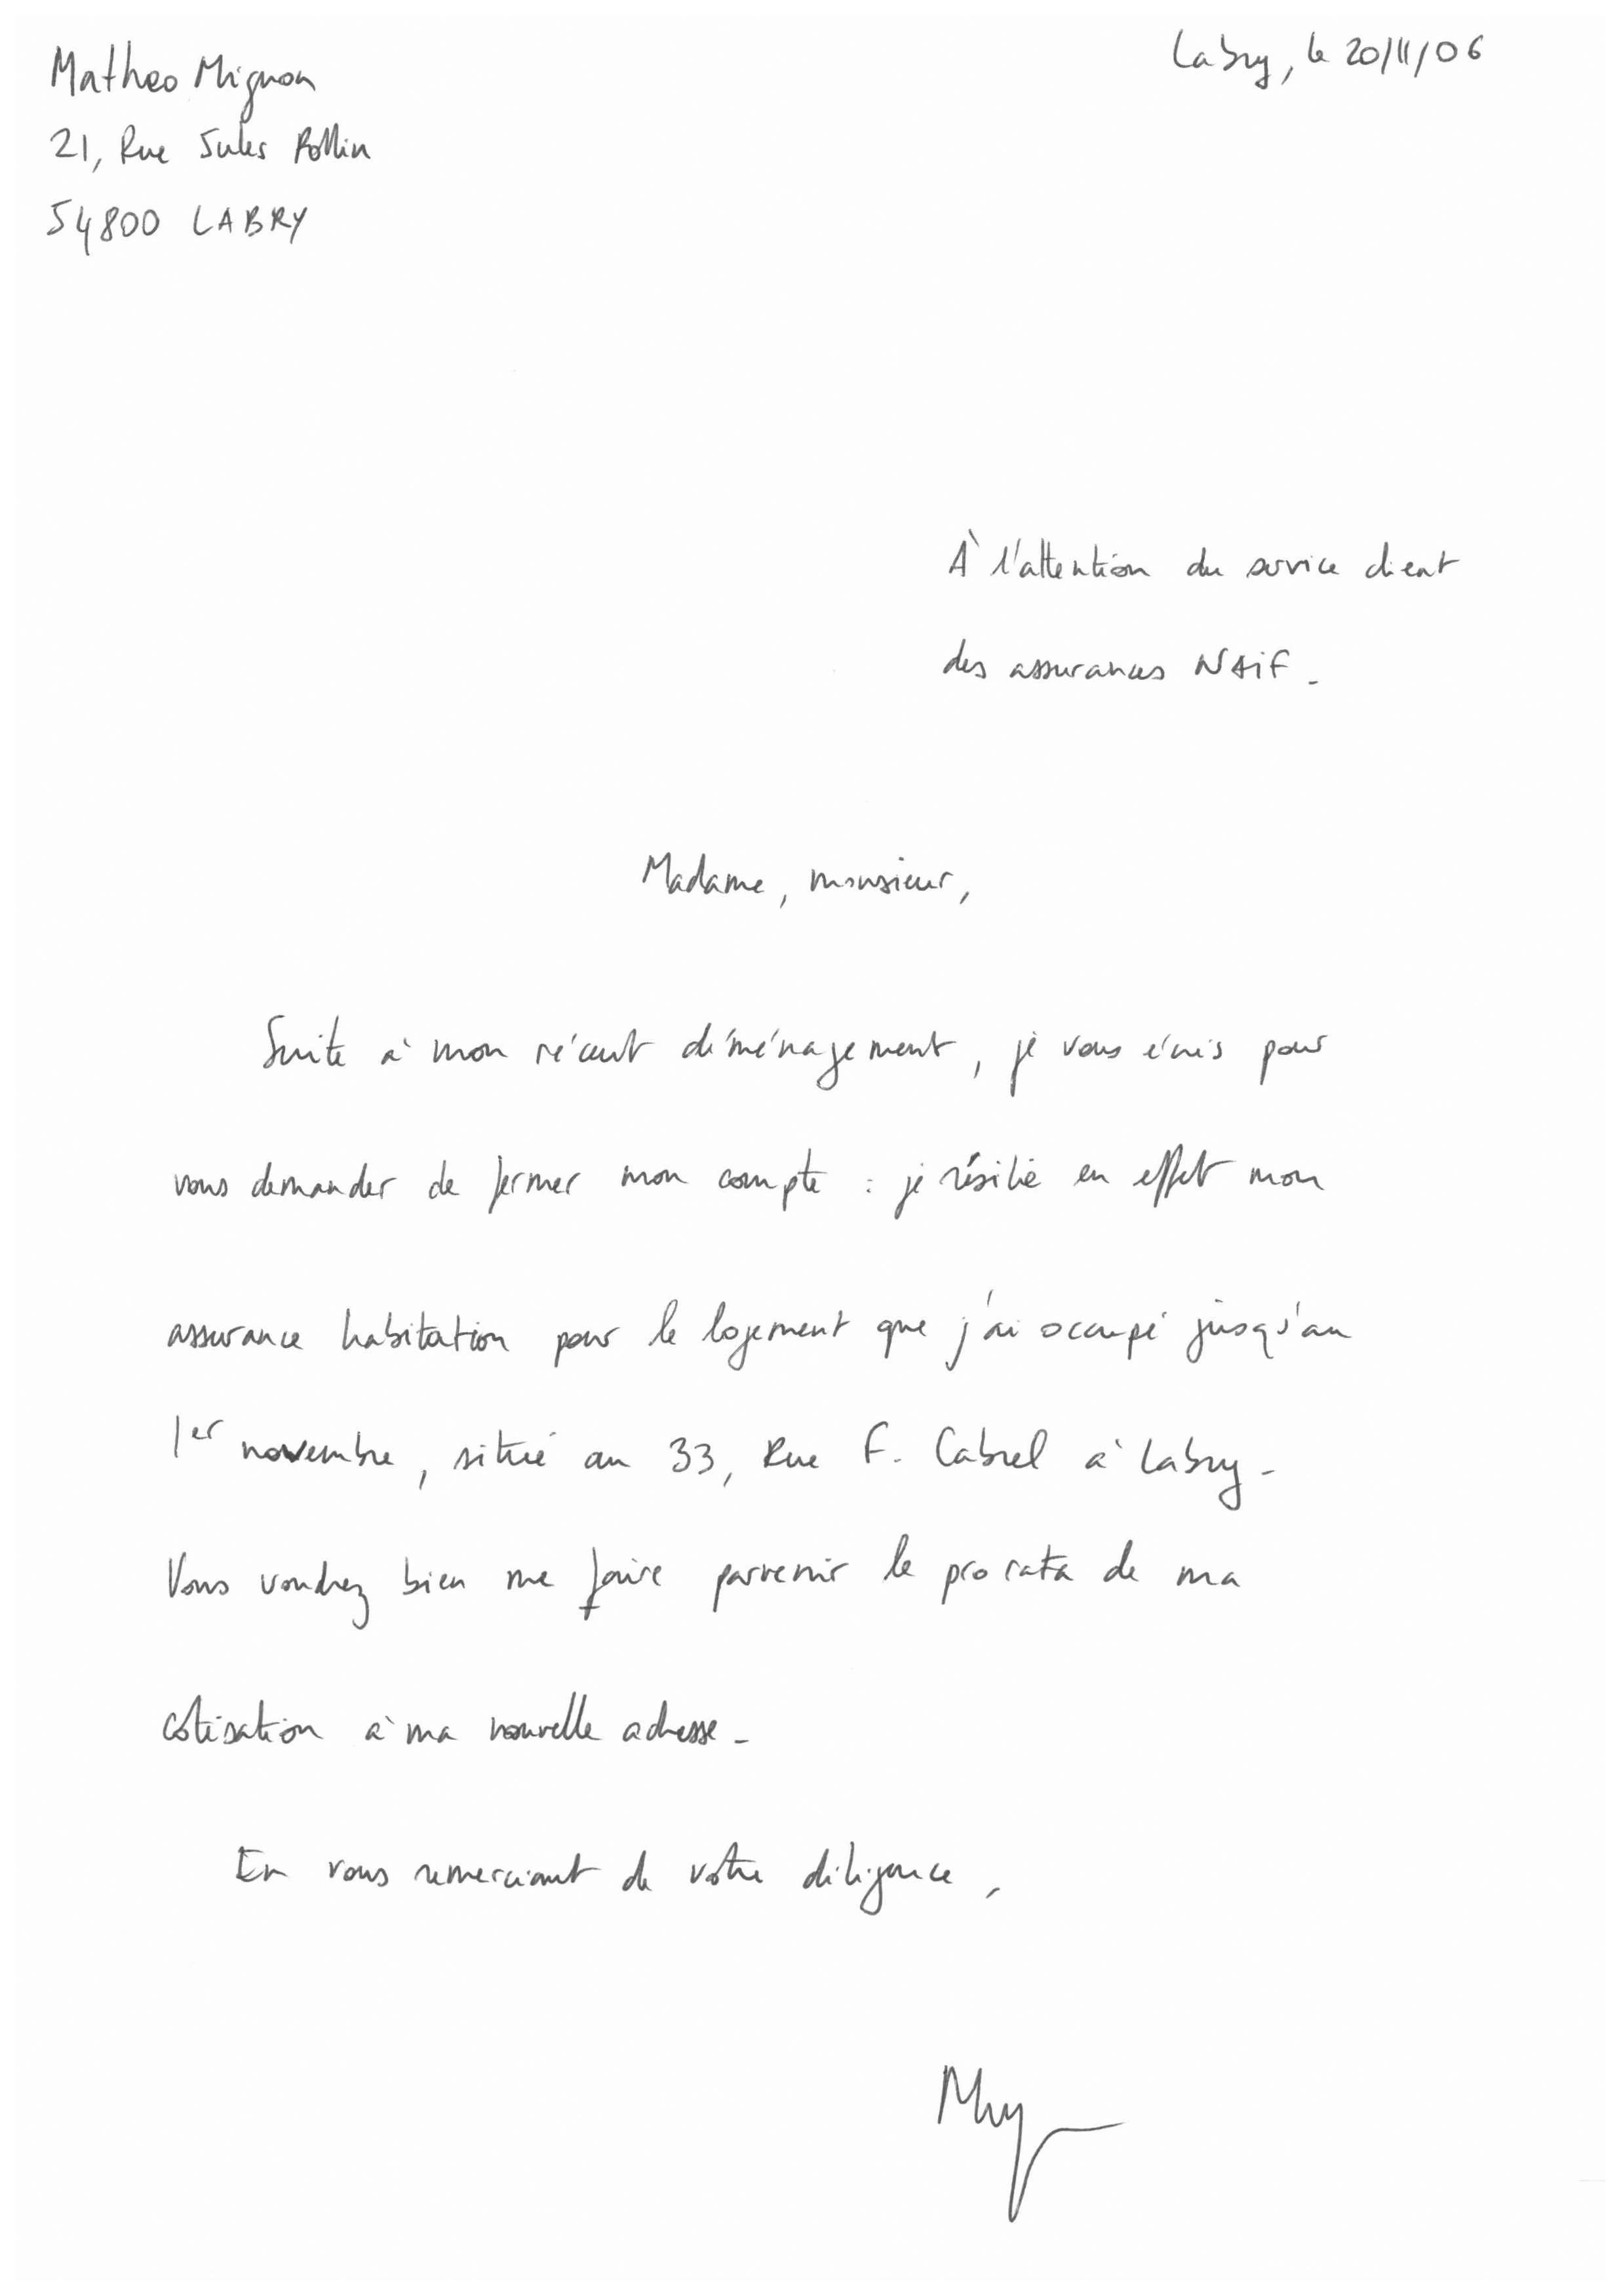 Matheo Mignon
Labry, le 20/11/06
21, Rue Jules Pollin
54800 LABRY
À l'attention du service client
des assurances NAIF.
Madame, monsieur,
Suite à mon récent déménagement, je vous écris pour
vous demander de fermer mon compte : je résilie en effet mon
assurance habitation pour le logement que j'ai occupé jusqu'au
1er novembre, situé au 33, Rue F. Cabrel à Labry.
Vous voudrez bien me faire parvenir le pro rata de ma
cotisation à ma nouvelle adresse.
En vous remerciant de votre diligence,